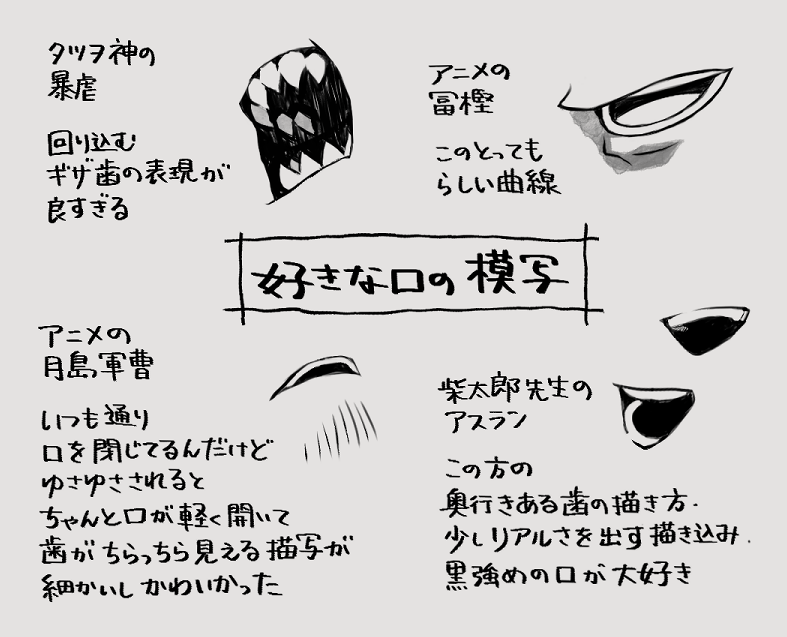 タツヲ神の
暴虐
回り込む
ギザ歯の表現が
良すぎる
アニメの
冨樫
このとっても
らしい曲線
好きな口の模写
アニメの
月島軍曹
いつも通り
口を閉じてるんだけど
ゆさゆさされると
ちゃんと口が軽く開いて
歯がちらっちら見える描写が
細かいしかわいかった
柴太郎先生の
アスラン
この方の
奥行きある歯の描き方.
少しリアルさを出す描き込み.
黒強めの口が大好き